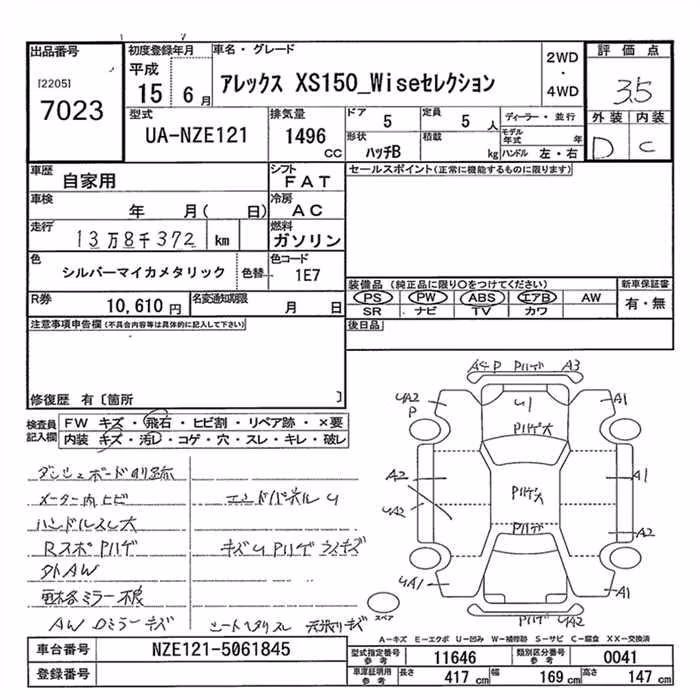 出品番号
[2205]
7023
初度登録年月
平成
15 6月
車名・グレード
アレックス XS150_Wiseセレクション
2WD
・
4WD
評価点
3.5
外装 内装
D C
型式
UA-NZE121
排気量
1496
CC
ドア
5
定員
5 人
形状
ハッチB
積載
kg
ディーラー・並行
モデル年式 年
ハンドル 左・右
車歴
自家用
シフト
FAT
車検
年 月( 日)
冷房
AC
走行
13万8千372 km
燃料
ガソリン
色
シルバーマイカメタリック
色替
色コード
1E7
R券
10,610 円
名変通知期限
月 日
セールスポイント(正常に機能するものに限ります)
装備品 (純正品に限り○をつけてください)
PS PW ABS エアB AW
SR ナビ TV カワ
新車保証書
有・無
後日品
注意事項申告欄(不具合内容等は具体的に記入して下さい)
修復歴 有〔箇所 〕
検査員記入欄
FW キズ・飛石・ヒビ割・リペア跡・×要
内装 キズ・汚レ・コゲ・穴・スレ・キレ・破レ
メーター内ヒビ
エンドパネルU
ハンドルスレ大
RスポPハゲ
キズU Pハゲ ラスキズ
外AW
AW Dミラーキズ
シートヘタリスレ 天張りキズ
A4P Pハゲ A3
UA2
P
U1
A1
Pハゲ大
A2
UA2
Pハゲ大
A1
A2
Pハゲ
UA1
A1
Pハゲ UA2
スペア
A-キズ E-エクボ U-凹み W-補修跡 S-サビ C-腐食 XX-交換済
車台番号
NZE121-5061845
登録番号
型式指定番号
参考
11646
類別区分番号
参考
0041
車庫証明用
参考
長さ 417 cm 幅 169 cm 高さ 147 cm